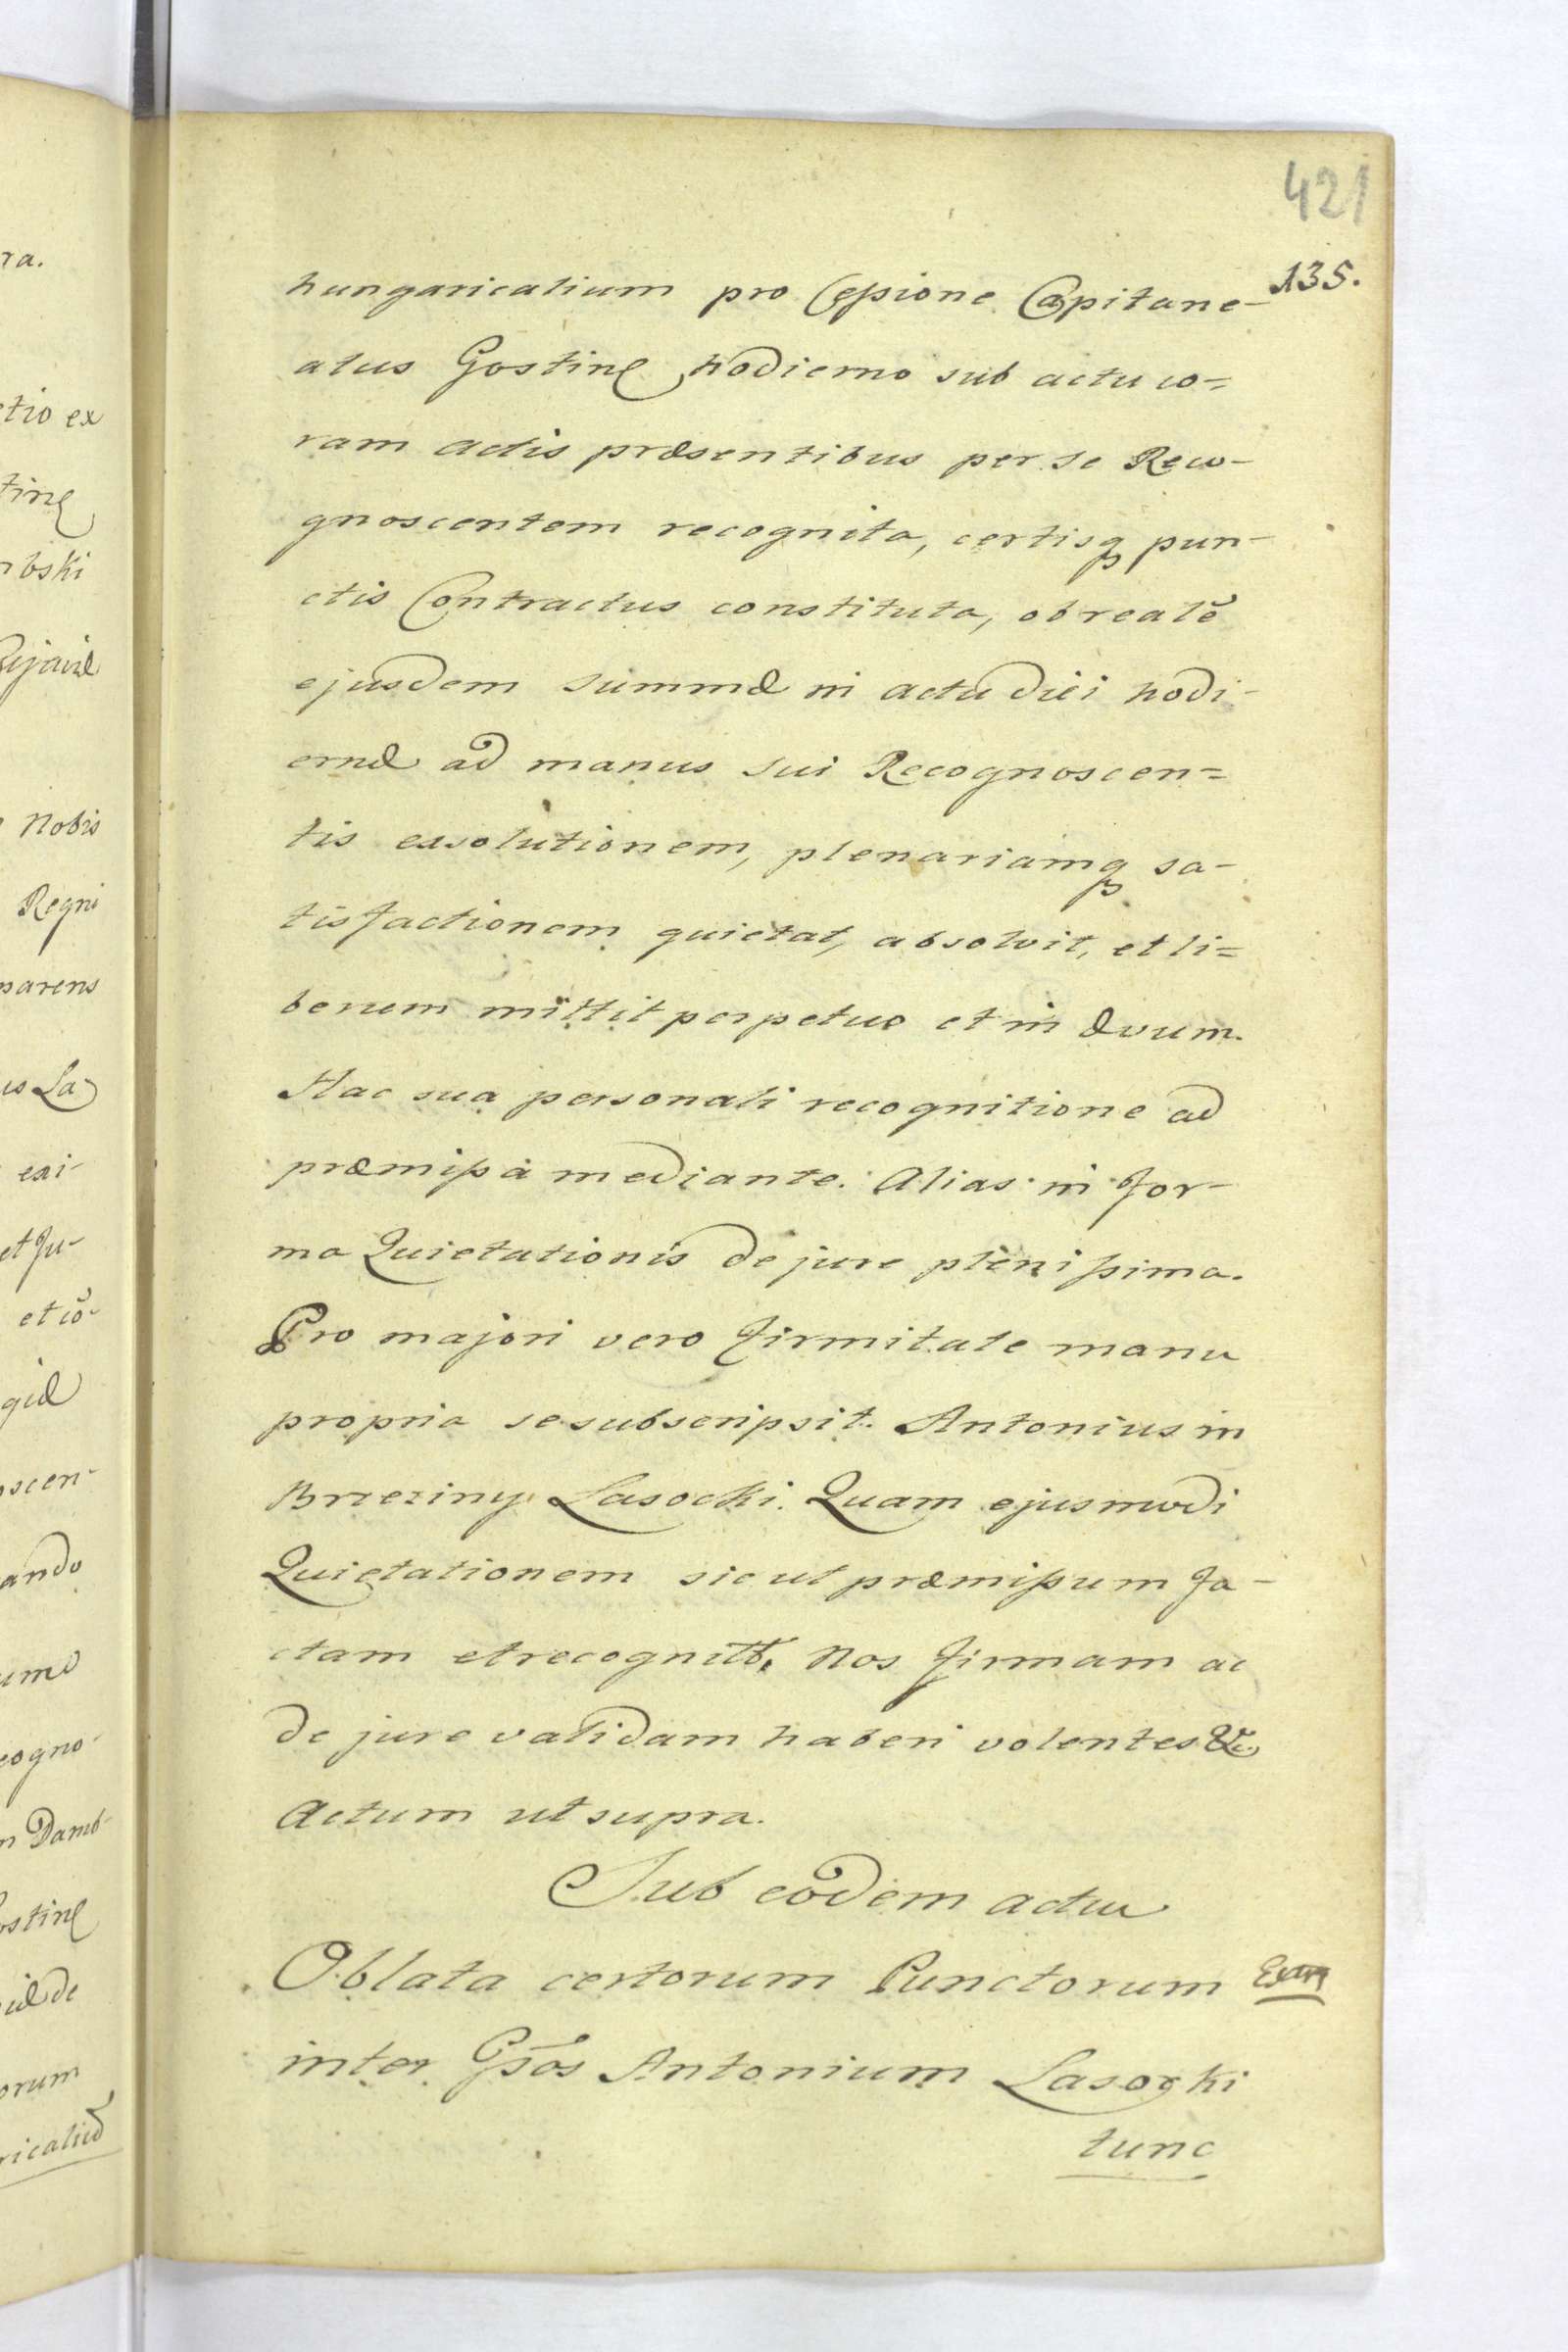 421
135.
hungaricalium pro Cessione Capitane-
atus Gostinē hodierno sub actu co=
ram actis præsentibus per se Reco-
gnoscentem recognita, certisq pun-
ctis Contractus constituta, ob realē
ejusdem summæ in actu diei hodi-
ernæ ad manus sui Recognoscen=
tis exsolutionem, plenariamq sa-
tisfactionem quietat, absolvit, et li=
berum mittit perpetuo et in ævum.
Hac sua personali recognitione ad
præmissa mediante. Alias in for-
ma Quietationis de jure plenissima.
Pro majori vero firmitate manu
propria se subscripsit. Antonius in
Brzeziny Lasocki. Quam ejusmodi
Quietationem sic ut præmissum fa-
ctam et recognitt. Nos firmam ac
de jure validam haberi volentes &c.
Actum ut supra.
Sub eodem actu
Oblata certorum Punctorum
inter Gsōs Antonium Lasocki
tunc
ra.
tio ex
tinę
bski
Nobis
Regni
parens
us La
exi-
et Ju-
et cō-
giæ
oscen-
ando
ogno-
n Damb-
ostinę
orum
ricaliū